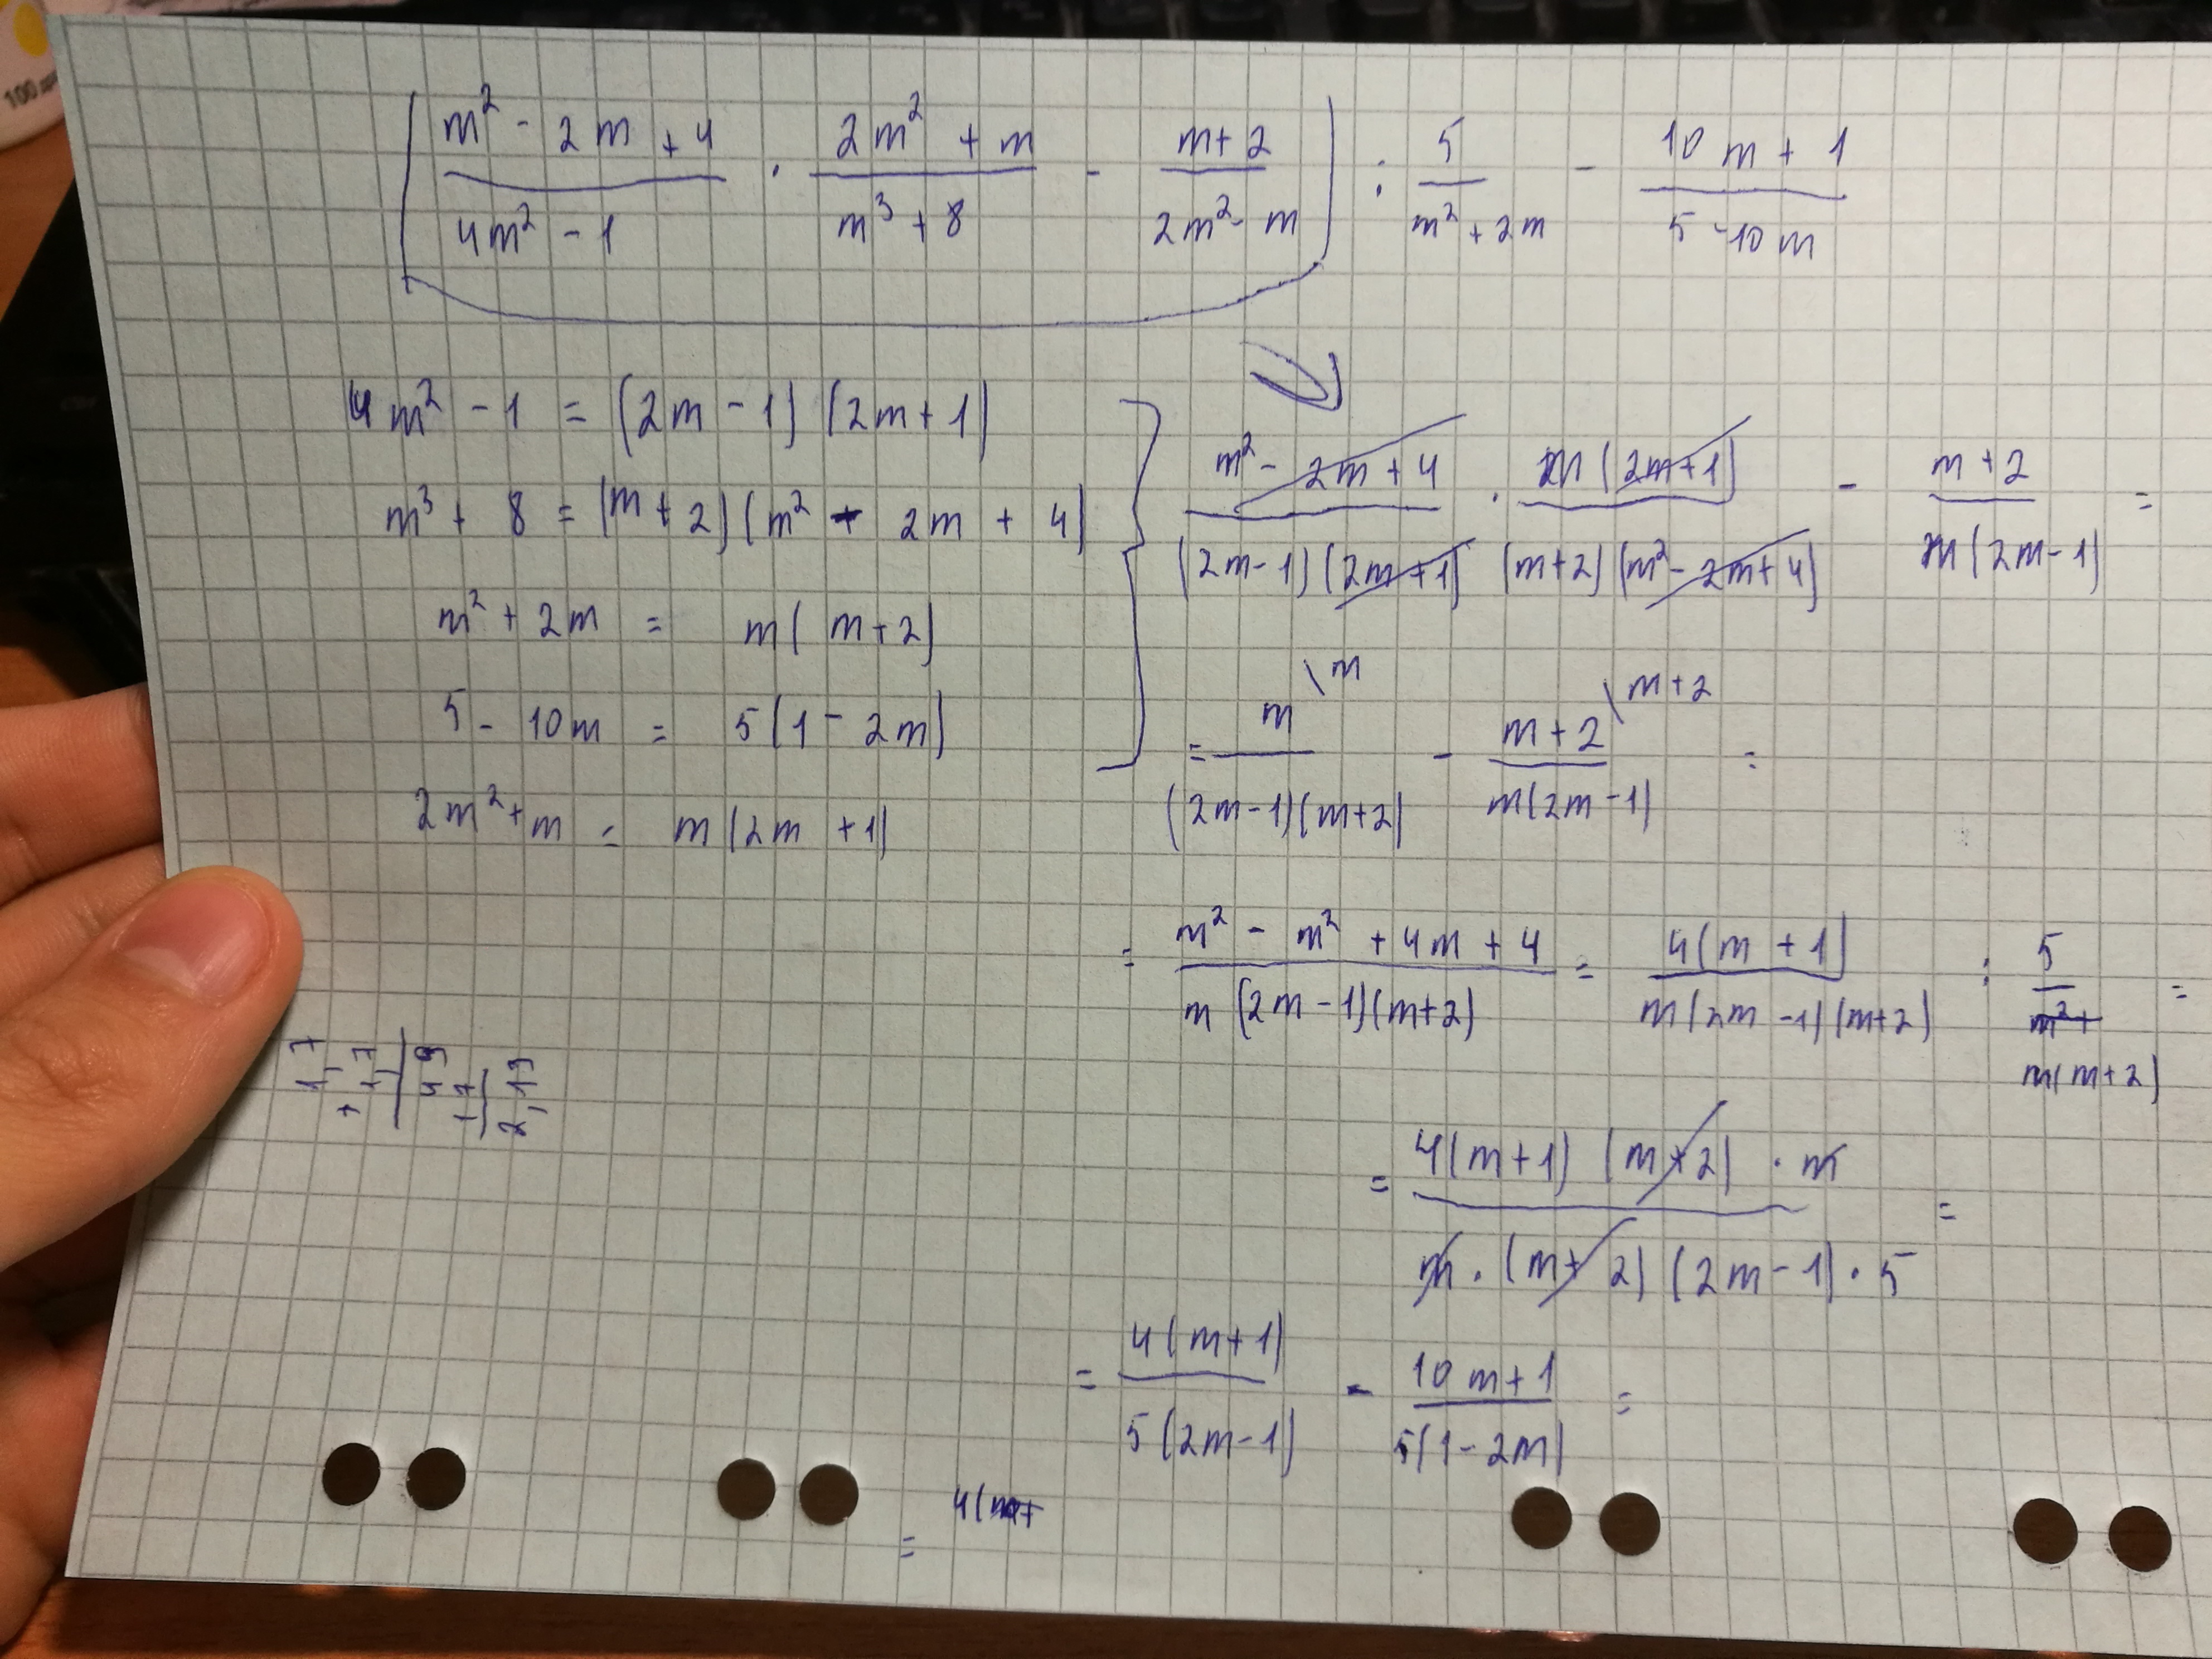 100
( (m² - 2m + 4)/(4m² - 1) · (2m² + m)/(m³ + 8) - (m+2)/(2m² - m) ) : 5/(m² + 2m) - (10m + 1)/(5 - 10m)
4m² - 1 = (2m - 1)(2m + 1)
m³ + 8 = (m + 2)(m² - 2m + 4)
m² + 2m = m(m+2)
5 - 10m = 5(1 - 2m)
2m² + m = m(2m + 1)
(m² - 2m + 4)/((2m-1)(2m+1)) · m(2m+1)/((m+2)(m² - 2m + 4)) - (m+2)/(m(2m-1)) =
= m\m/((2m-1)(m+2)) - (m+2)\m+2/(m(2m-1)) =
= (m² - m² + 4m + 4)/(m(2m-1)(m+2)) = 4(m+1)/(m(2m-1)(m+2)) : 5/(m(m+2)) =
= (4(m+1)(m+2) · m)/(m · (m+2)(2m-1) · 5) =
= 4(m+1)/(5(2m-1)) - (10m+1)/(5(1-2m)) =
= 4(m+
1,7
+ 1,7
49
17
2,19